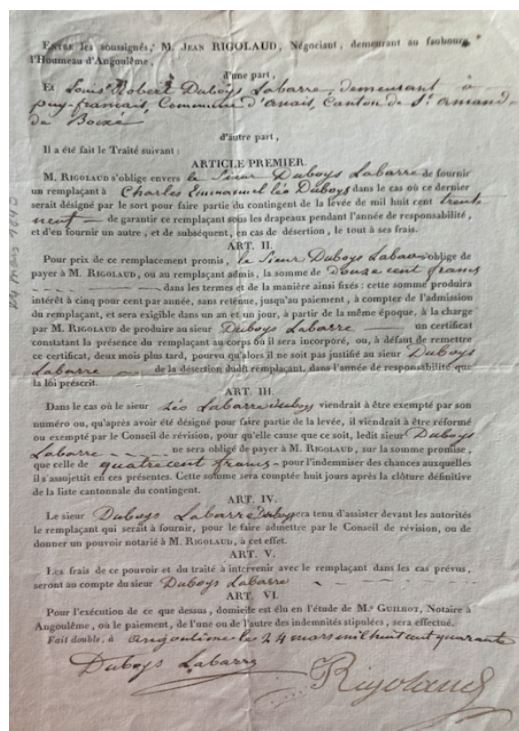 ENTRE les soussignés, M. JEAN RIGOLAUD, Négociant, demeurant au faubourg
l'Houmeau d'Angoulême,
d'une part,
Et Louis Robert Duboys Labarre, demeurant à
puy-français, Commune d'anais, Canton de St amand-
de Boixe
d'autre part,
Il a été fait le Traité suivant :
ARTICLE PREMIER.
M. RIGOLAUD s'oblige envers le Sieur Duboys Labarre de fournir
un remplaçant à Charles Emmanuel Léo Duboys dans le cas où ce dernier
serait désigné par le sort pour faire partie du contingent de la levée de mil huit cent trente
neuf — de garantir ce remplaçant sous les drapeaux pendant l'année de responsabilité,
et d'en fournir un autre, et de subséquent, en cas de désertion, le tout à ses frais.
ART. II.
Pour prix de ce remplacement promis, le Sieur Duboys Labarre s'oblige de
payer à M. RIGOLAUD, ou au remplaçant admis, la somme de douze cent francs
dans les termes et de la manière ainsi fixés : cette somme produira
intérêt à cinq pour cent par année, sans retenue, jusqu'au paiement, à compter de l'admission
du remplaçant, et sera exigible dans un an et un jour, à partir de la même époque, à la charge
par M. RIGOLAUD de produire au sieur Duboys Labarre — un certificat
constatant la présence du remplaçant au corps où il sera incorporé, ou, à défaut de remettre
ce certificat, deux mois plus tard, pourvu qu'alors il ne soit pas justifié au sieur Duboys
Labarre — de la désertion dudit remplaçant, dans l'année de responsabilité que
la loi prescrit.
ART. III.
Dans le cas où le sieur Léo Labarre Duboys viendrait à être exempté par son
numéro ou, qu'après avoir été désigné pour faire partie de la levée, il viendrait à être réformé
ou exempté par le Conseil de révision, pour qu'elle cause que ce soit, ledit sieur Duboys
Labarre ne sera obligé de payer à M. RIGOLAUD, sur la somme promise,
que celle de quatre cent francs - pour l'indemniser des chances auxquelles
il s'assujettit en ces présentes. Cette somme sera comptée huit jours après la clôture définitive
de la liste cantonnale du contingent.
ART. IV.
Le sieur Duboys Labarre sera tenu d'assister devant les autorités
le remplaçant qui serait à fournir, pour le faire admettre par le Conseil de révision, ou de
donner un pouvoir notarié à M. RIGOLAUD, à cet effet.
ART. V.
Les frais de ce pouvoir et du traité à intervenir avec le remplaçant dans les cas prévus,
seront au compte du sieur Duboys Labarre
ART. VI.
Pour l'exécution de ce que dessus, domicile est élu en l'étude de Me GUILHOT, Notaire à
Angoulême, où le paiement, de l'une ou de l'autre des indemnités stipulées, sera effectué.
Fait double, à angoulême les 24 mars mil huit cent quarante
Duboys Labarre
Rigolaud
24 mars 1840